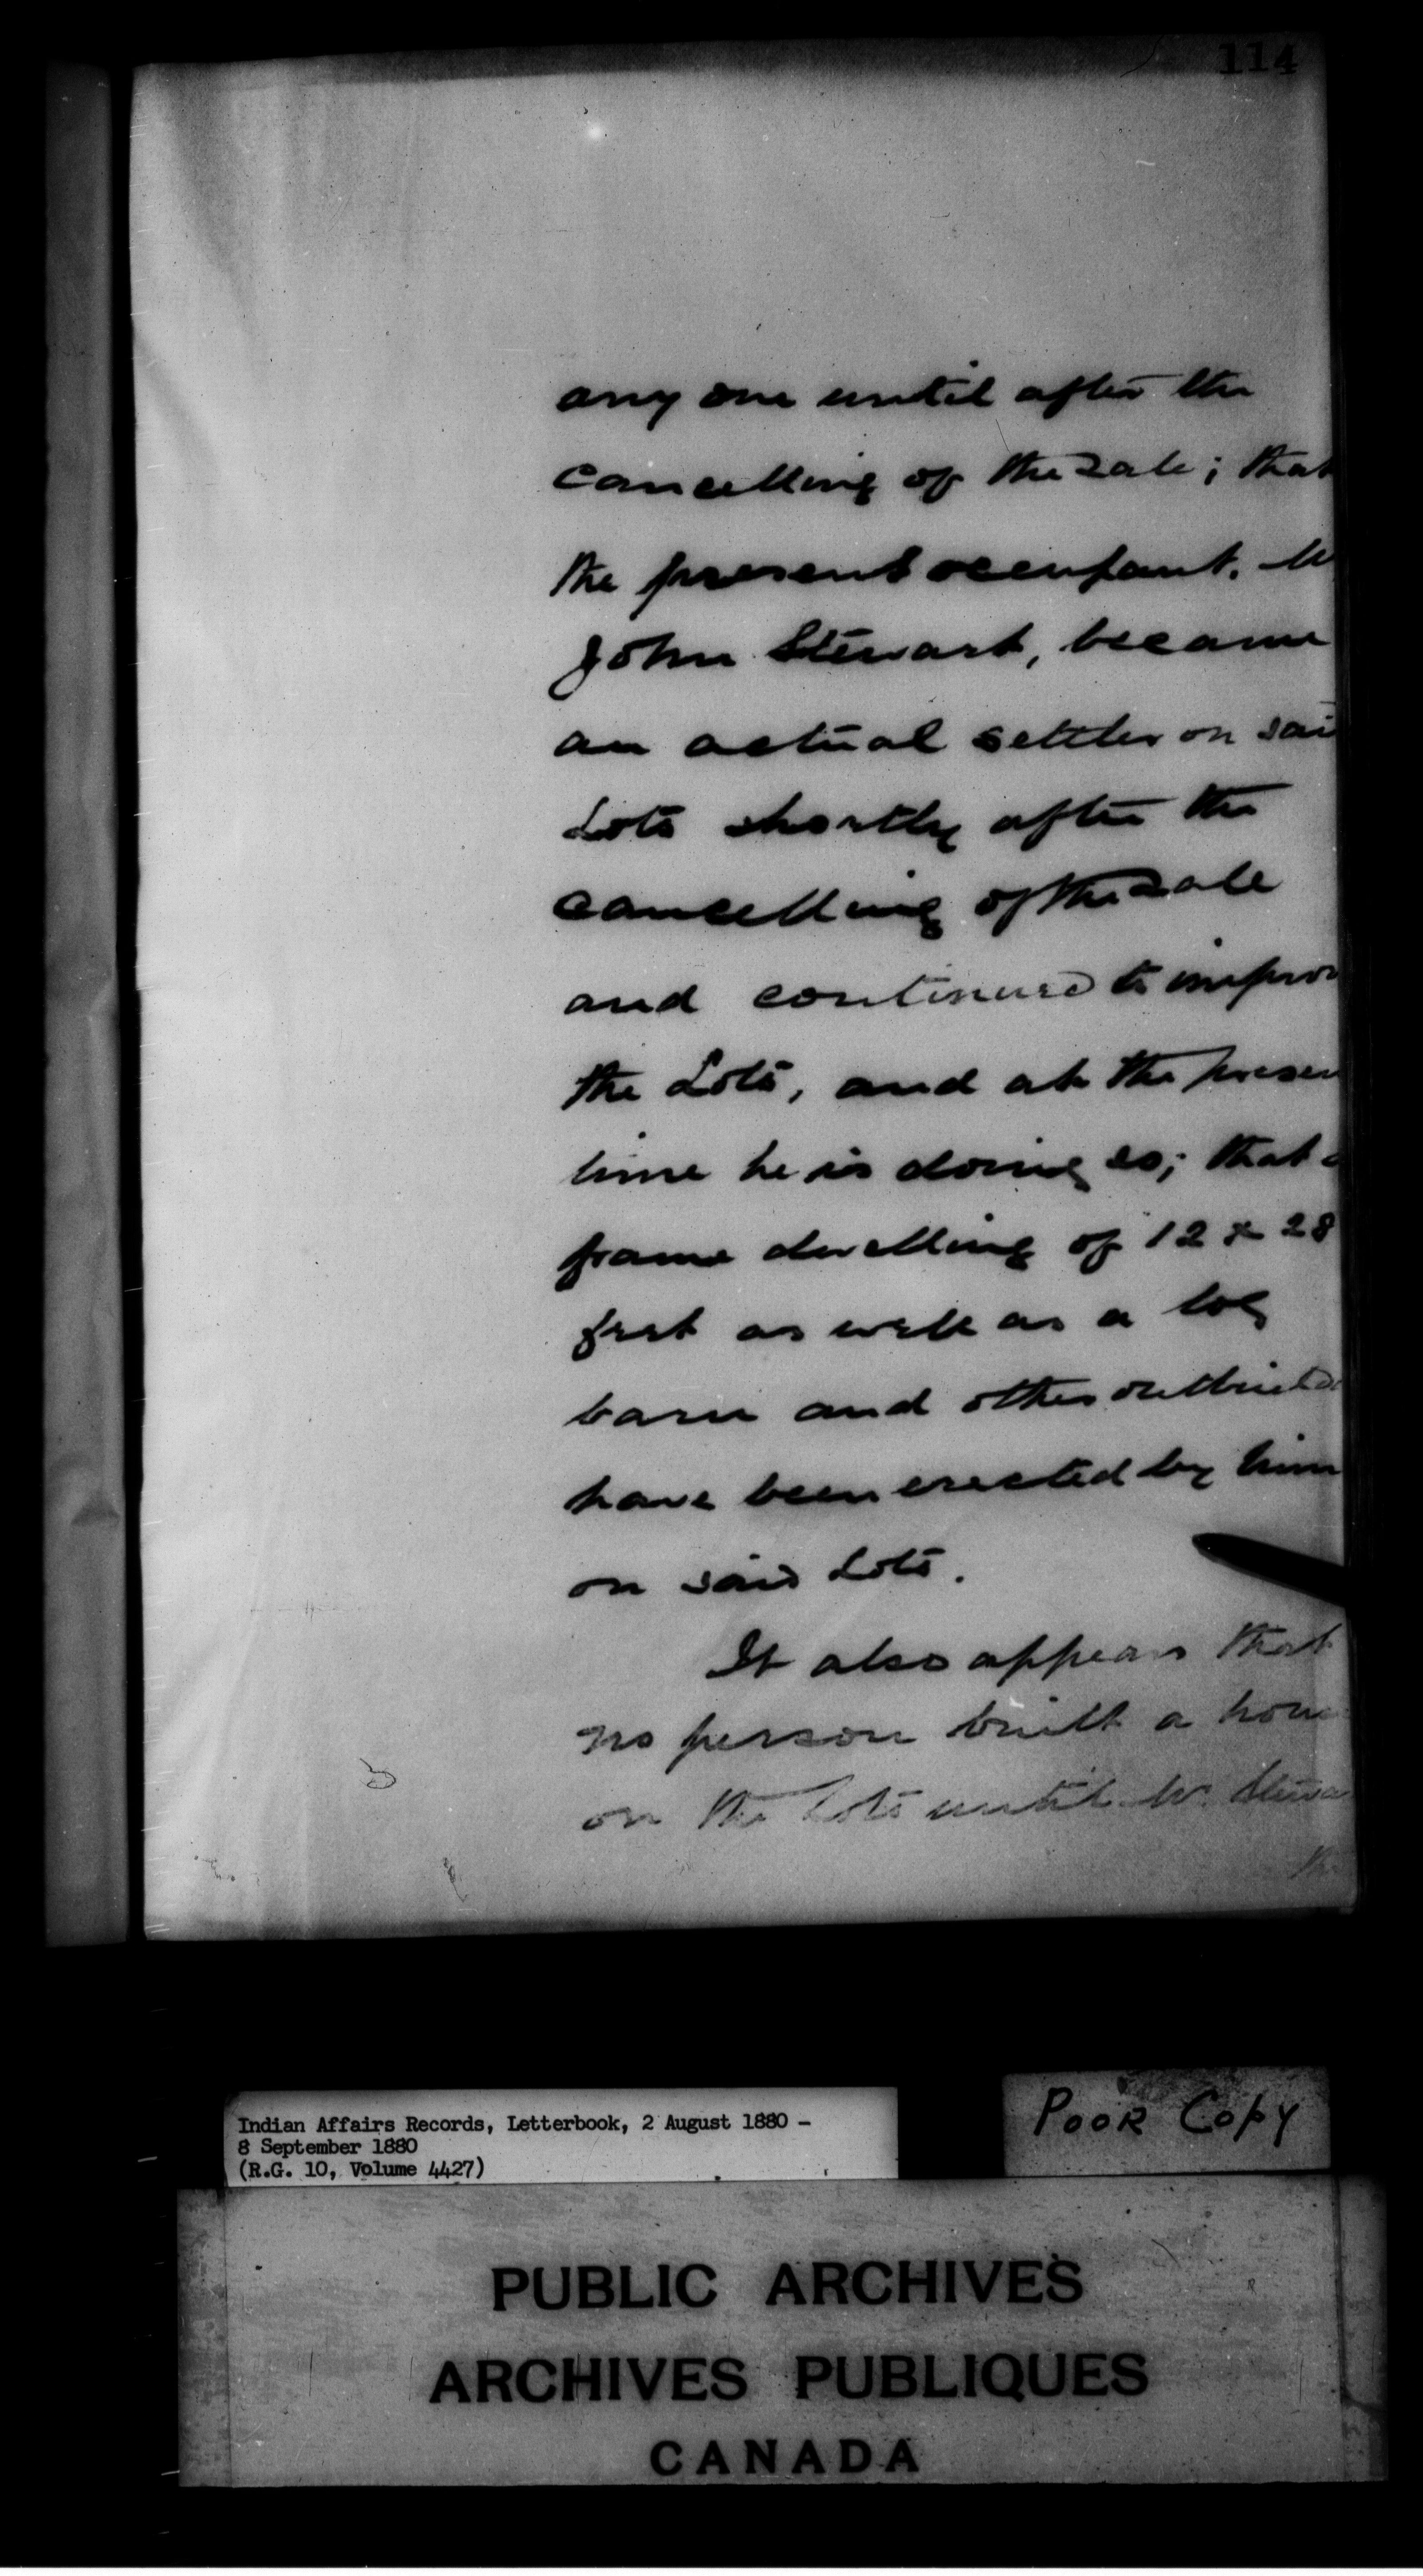 114
any one until after the
cancelling of the sale; that
the present occupant, M
John Stewart, became
an actual settler on sai
Lots shortly after the
cancelling of the sale
and continued to improv
the Lots, and at the presen
time he is doing so; that a
frame dwelling of 12 x 28
feet as well as a log
barn and other outbuild
have been erected by him
on said Lots.
It also appears that
no person built a hous
on the Lots until Mr. Stewa
the
Indian Affairs Records, Letterbook, 2 August 1880 -
8 September 1880
(R.G. 10, Volume 4427)
POOR COPY
PUBLIC ARCHIVES
ARCHIVES PUBLIQUES
CANADA